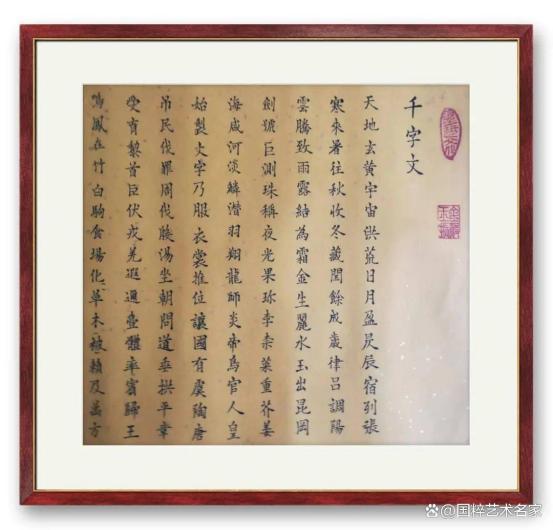 千字文
天地玄黄宇宙洪荒日月盈昃辰宿列張
寒來暑往秋收冬藏閏餘成歲律吕調陽
雲騰致雨露結為霜金生麗水玉出昆岡
劍號巨測珠稱夜光果珎李柰菜重芥姜
海咸河淡鱗潛羽翔龍師炎帝鳥官人皇
始製文字乃服衣裳推位讓國有虞陶唐
吊民伐罪周伐殷湯坐朝問道垂拱平章
愛育黎首臣伏戎羌遐邇壹體率賓歸王
鳴鳳在竹白駒食場化草木被賴及萬方
@国粹艺术名家